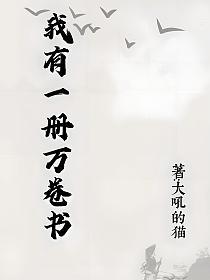 我有一册万卷书
著大吼的猫